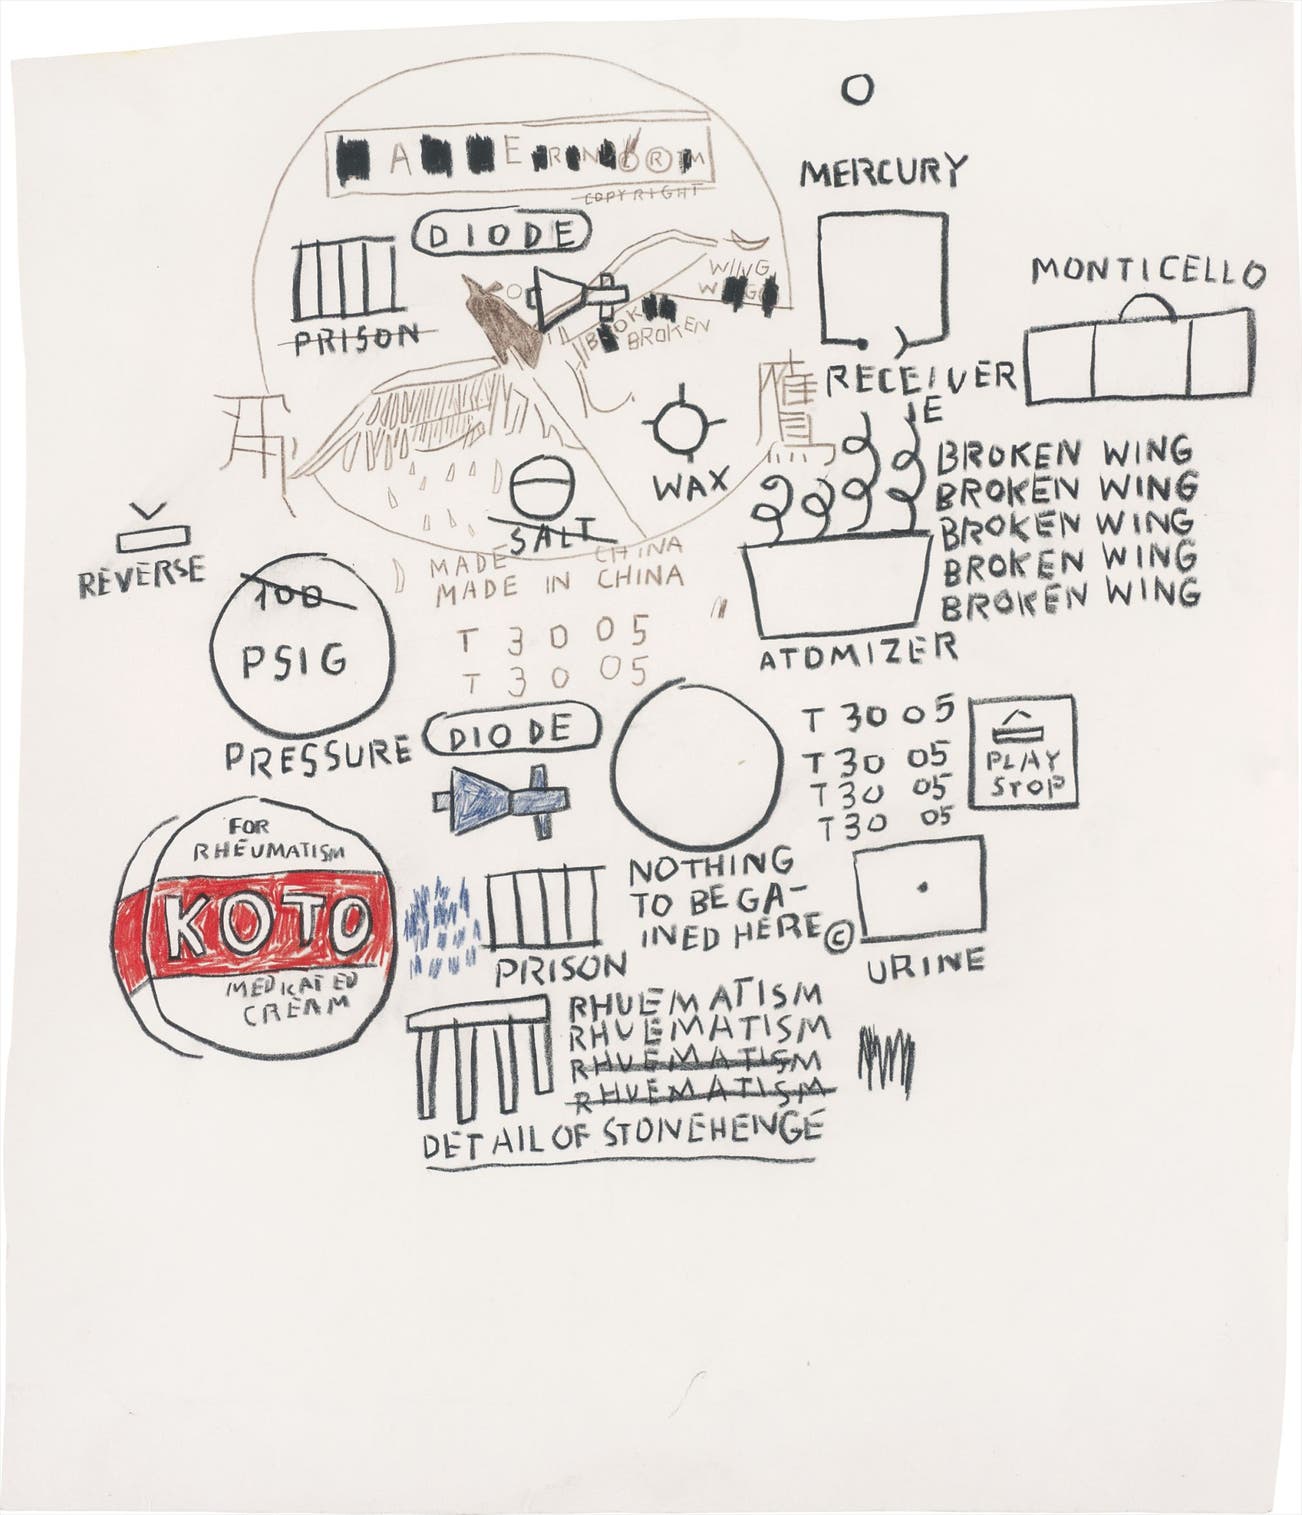 MERCURY
COPYRIGHT
DIODE
PRISON
WING
BROKEN
MONTICELLO
RECEIVER
IE
鷹
WAX
SALT
BROKEN WING
BROKEN WING
BROKEN WING
BROKEN WING
BROKEN WING
REVERSE
MADE CHINA
MADE IN CHINA
100
PSIG
PRESSURE
T 3 0 05
T 3 0 05
ATOMIZER
DIODE
T 30 05
T 30 05
T 30 05
T 30 05
PLAY
STOP
FOR
RHEUMATISM
KOTO
MEDICATED
CREAM
NOTHING
TO BE GA-
INED HERE ©
PRISON
URINE
RHUEMATISM
RHUEMATISM
RHUEMATISM
RHUEMATISM
DETAIL OF STONEHENGE